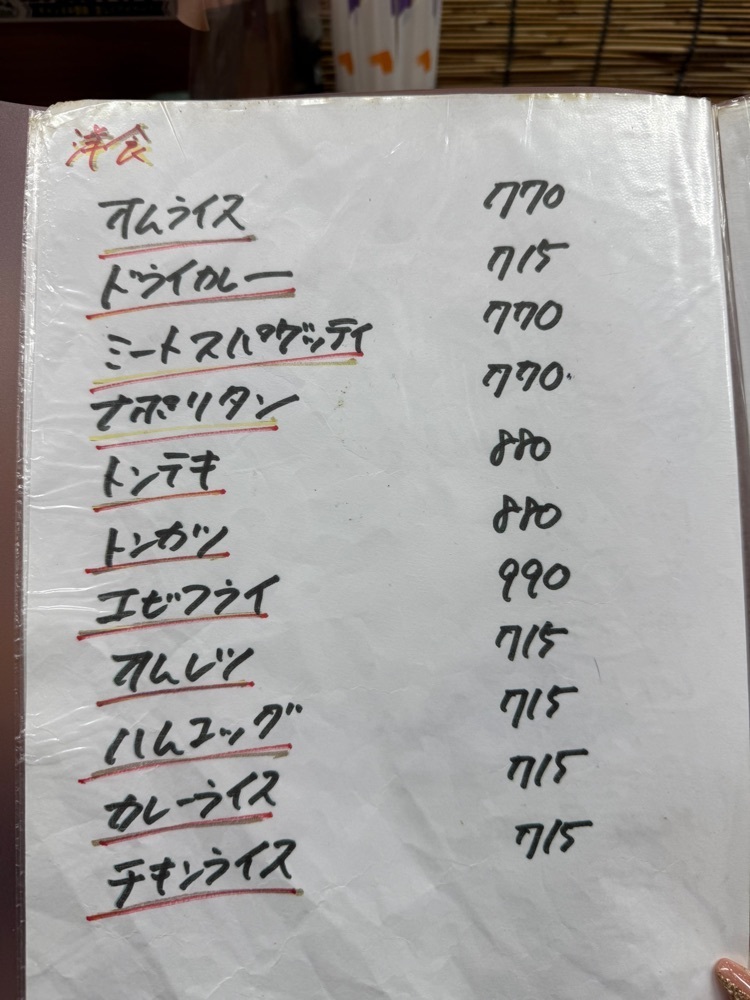 洋食
オムライス 770
ドライカレー 715
ミートスパゲッティ 770
ナポリタン 770
トンテキ 880
トンカツ 880
エビフライ 990
オムレツ 715
ハムエッグ 715
カレーライス 715
チキンライス 715